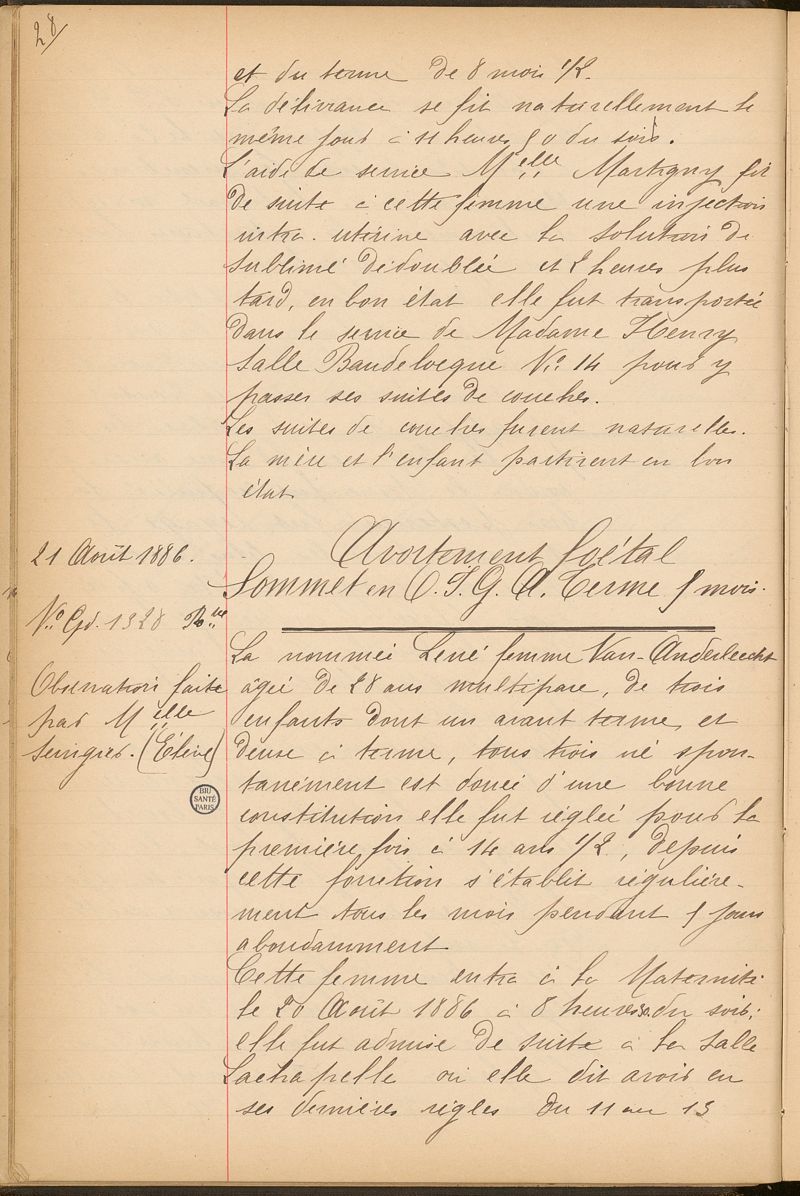 28/
et du terme de 8 mois 1/2.
La délivrance se fit naturellement le
même jour à 11 heures 50 du soir.
L'aide de service Melle Martigny fit
de suite à cette femme une injection
intra-utérine avec la solution de
sublimé dédoublée et 2 heures plus
tard, en bon état elle fut transportée
dans le service de Madame Henry
salle Baudelocque No 14 pour y
passer ses suites de couches.
Les suites de couches furent naturelles.
La mère et l'enfant partirent en bon
état
21 Août 1886.
Avortement foétal
Sommet en O.I.G.A. Terme 5 mois.
No Gd. 1328
Observation faite
par Melle
(Elève)
BIU SANTÉ PARIS
La nommée femme Van-Anderleecht
âgée de 28 ans multipare, de trois
enfants dont un avant terme, et
deux à terme, tous trois né spon-
tanément est douée d'une bonne
constitution elle fut réglée pour la
première fois à 14 ans 1/2, depuis
cette fonction s'établit régulière-
ment tous les mois pendant 5 jours
abondamment
Cette femme entra à la Maternité
le 20 Août 1886 à 8 heures du soir;
elle fut admise de suite à la salle
Lachapelle où elle dit avoir eu
ses dernières règles du 11 au 13